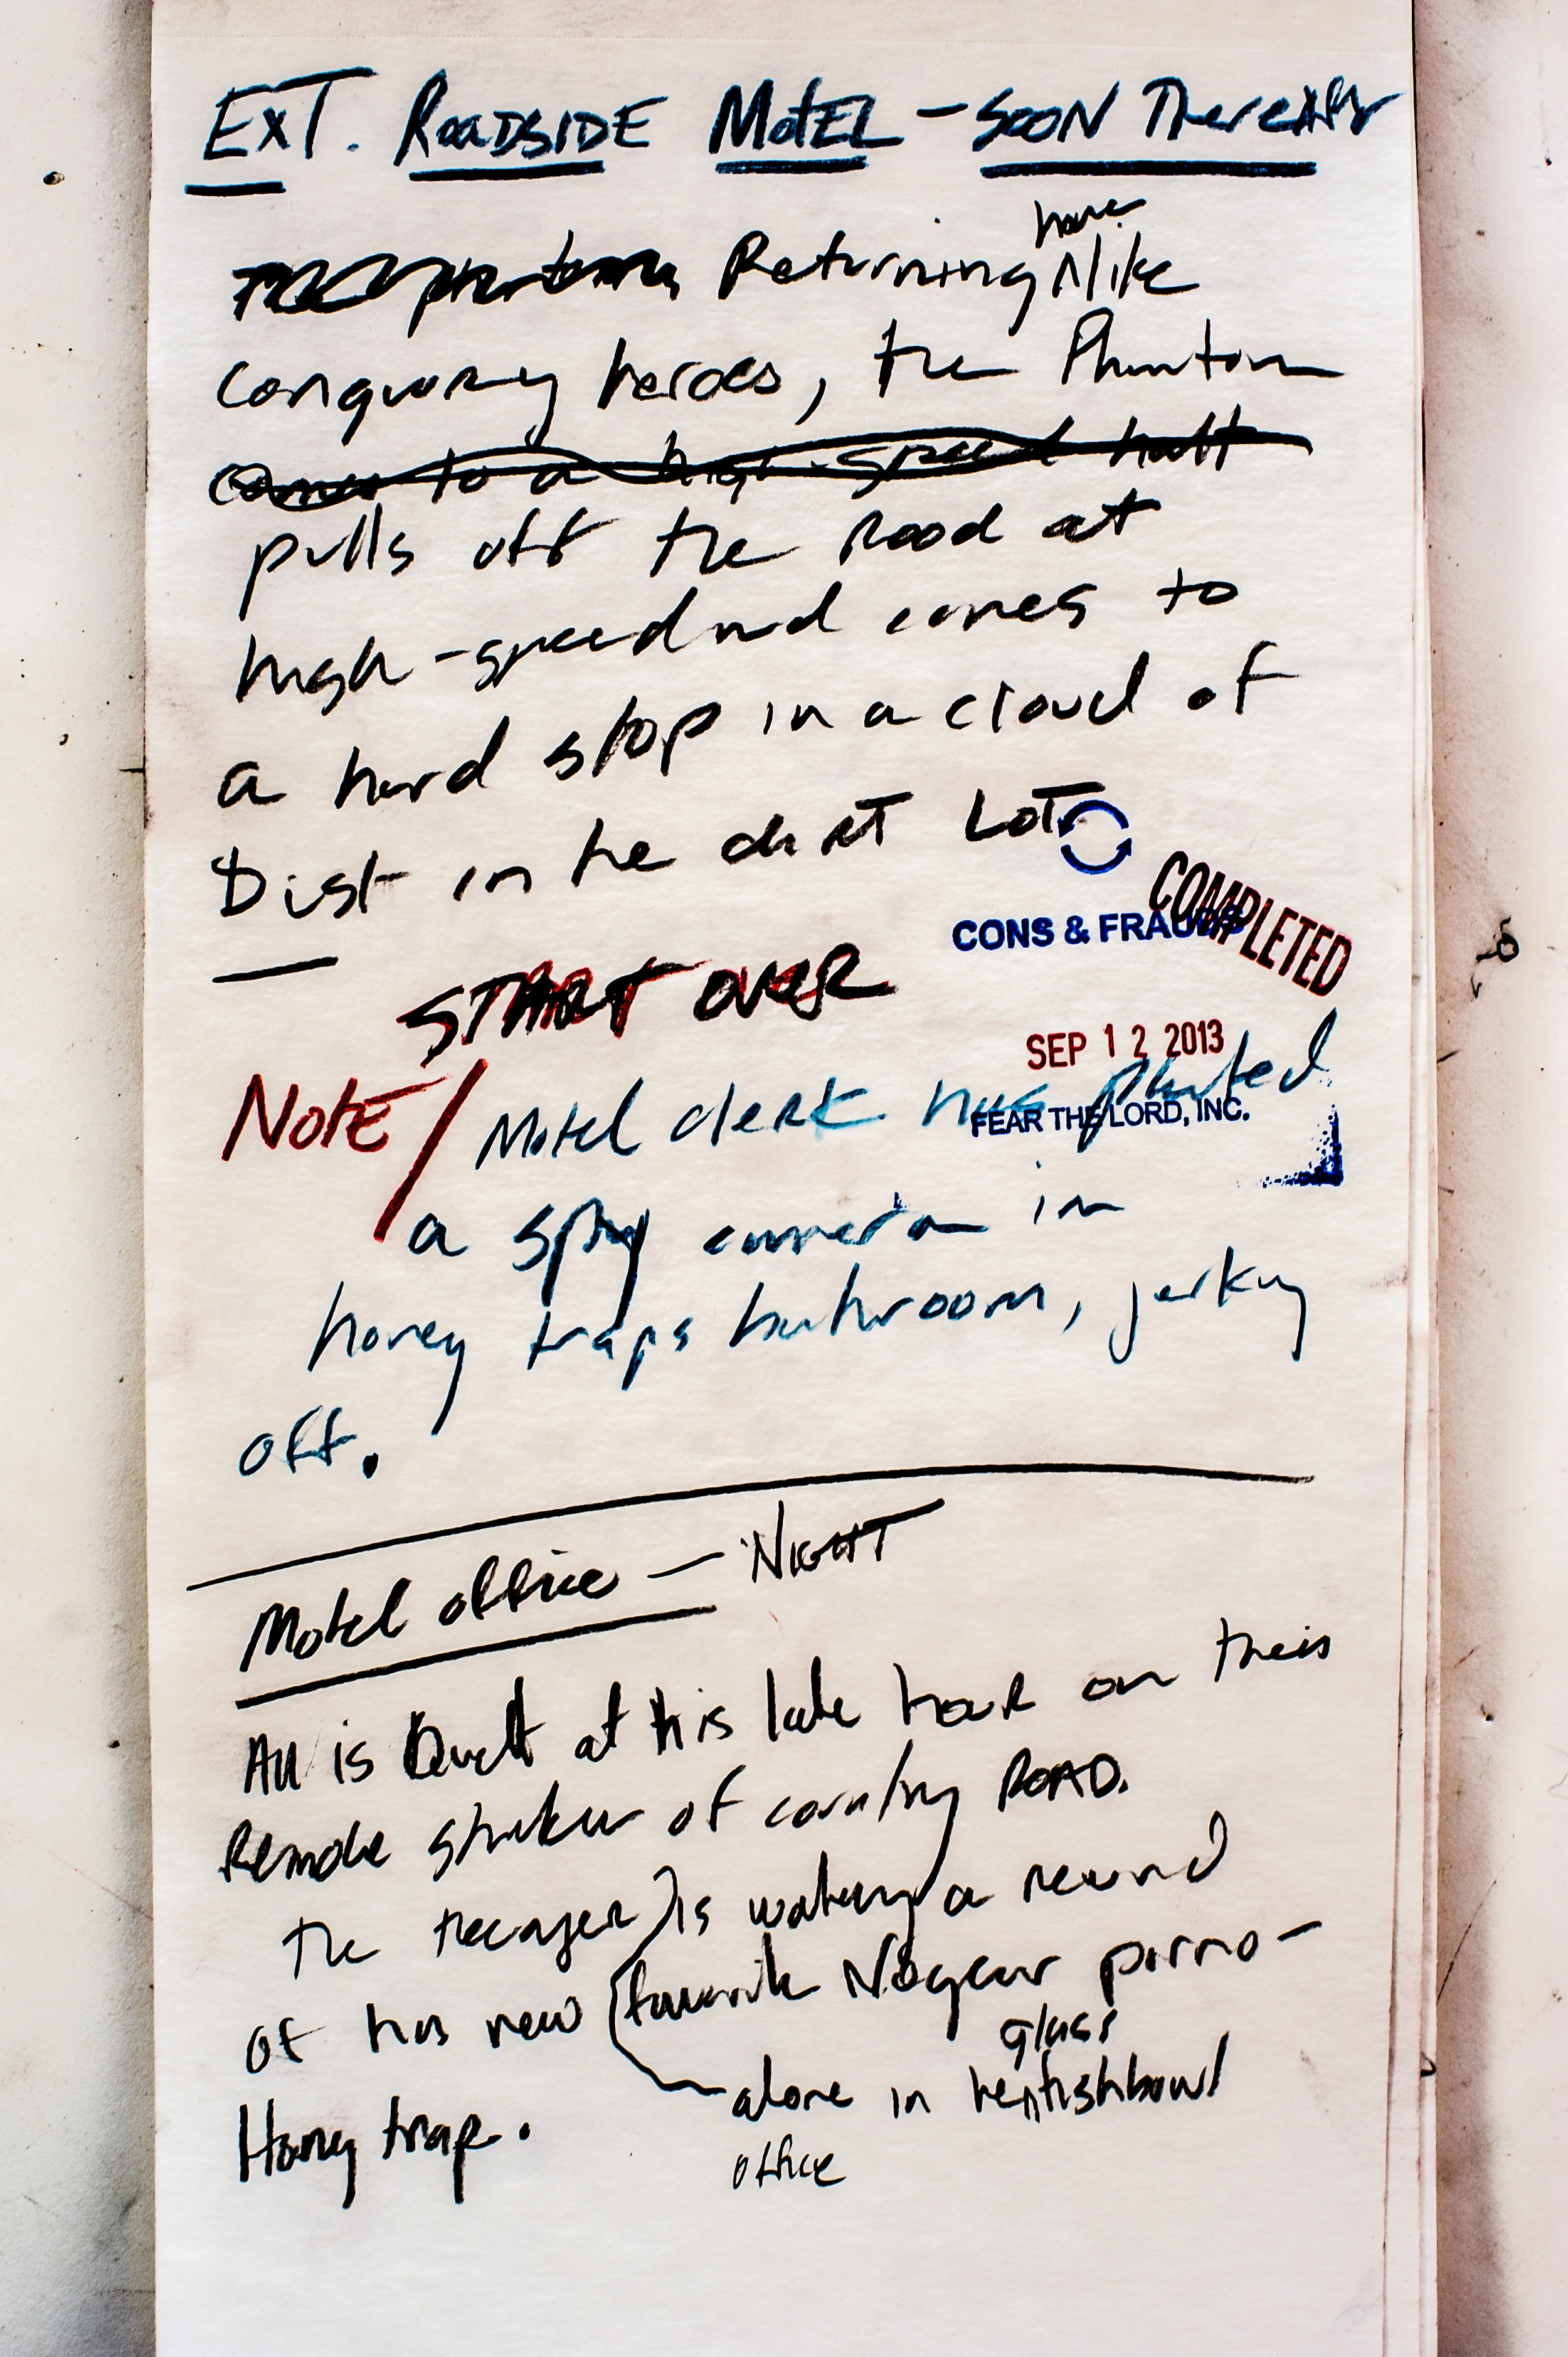 EXT. ROADSIDE MOTEL - SOON Thereafter
home
Returning ^ like
conquering heroes, the Phantom
comes to a high-speed halt
pulls off the Road at
high-speed and comes to
a hard stop in a cloud of
Dust in the dirt LOT
COMPLETED
CONS & FRAUDS
START OVER
SEP 12 2013
NOTE/ Motel clerk has planted
FEAR THE LORD, INC.
a spy camera in
honey traps bathroom, jerking
off.
Motel office - NIGHT
All is Quiet at this late hour on this
Remote stretch of country ROAD.
The teenager is watching a
of his new favorite porno -
glass
alone in ^ fishbowl
Honey trap.
office